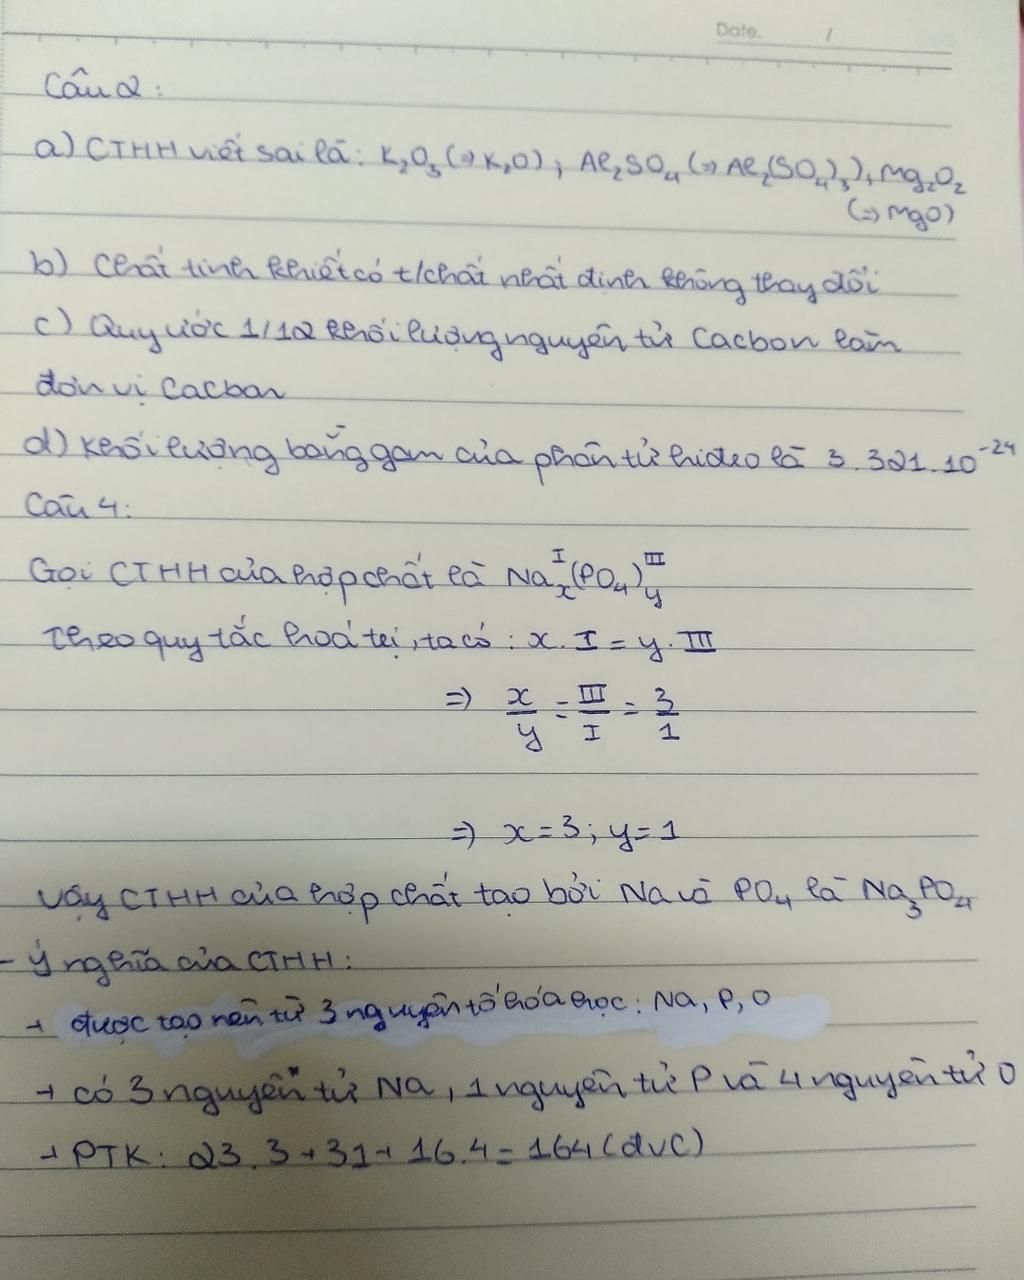 Date. /
Câu 2:
a) CTHH viết sai là: K₂O₃ (=> K₂O); Al₂SO₄ (=> Al₂(SO₄)₃), Mg₂O₂
(=> MgO)
b) Chất tinh khiết có t/chất nhất định không thay đổi
c) Quy ước 1/12 khối lượng nguyên tử Cacbon làm
đơn vị Cacbon
d) Khối lượng bằng gam của phân tử hiđro là 3.321.10⁻²⁴
Câu 4:
Gọi CTHH của hợp chất là Naₓᴵ(PO₄)ᵧᴵᴵᴵ
Theo quy tắc hoá trị, ta có: x. I = y. III
=> x/y = III/I = 3/1
=> x = 3; y = 1
Vậy CTHH của hợp chất tạo bởi Na và PO₄ là Na₃PO₄
- Ý nghĩa của CTHH:
+ được tạo nên từ 3 nguyên tố hóa học: Na, P, O
+ có 3 nguyên tử Na, 1 nguyên tử P và 4 nguyên tử O
+ PTK: 23.3+31+16.4=164(đvC)